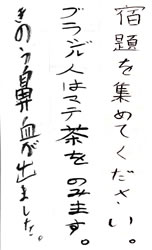 宿題を集めてください。
ブラジル人はマテ茶をのみます。
きのう鼻血が出ました。